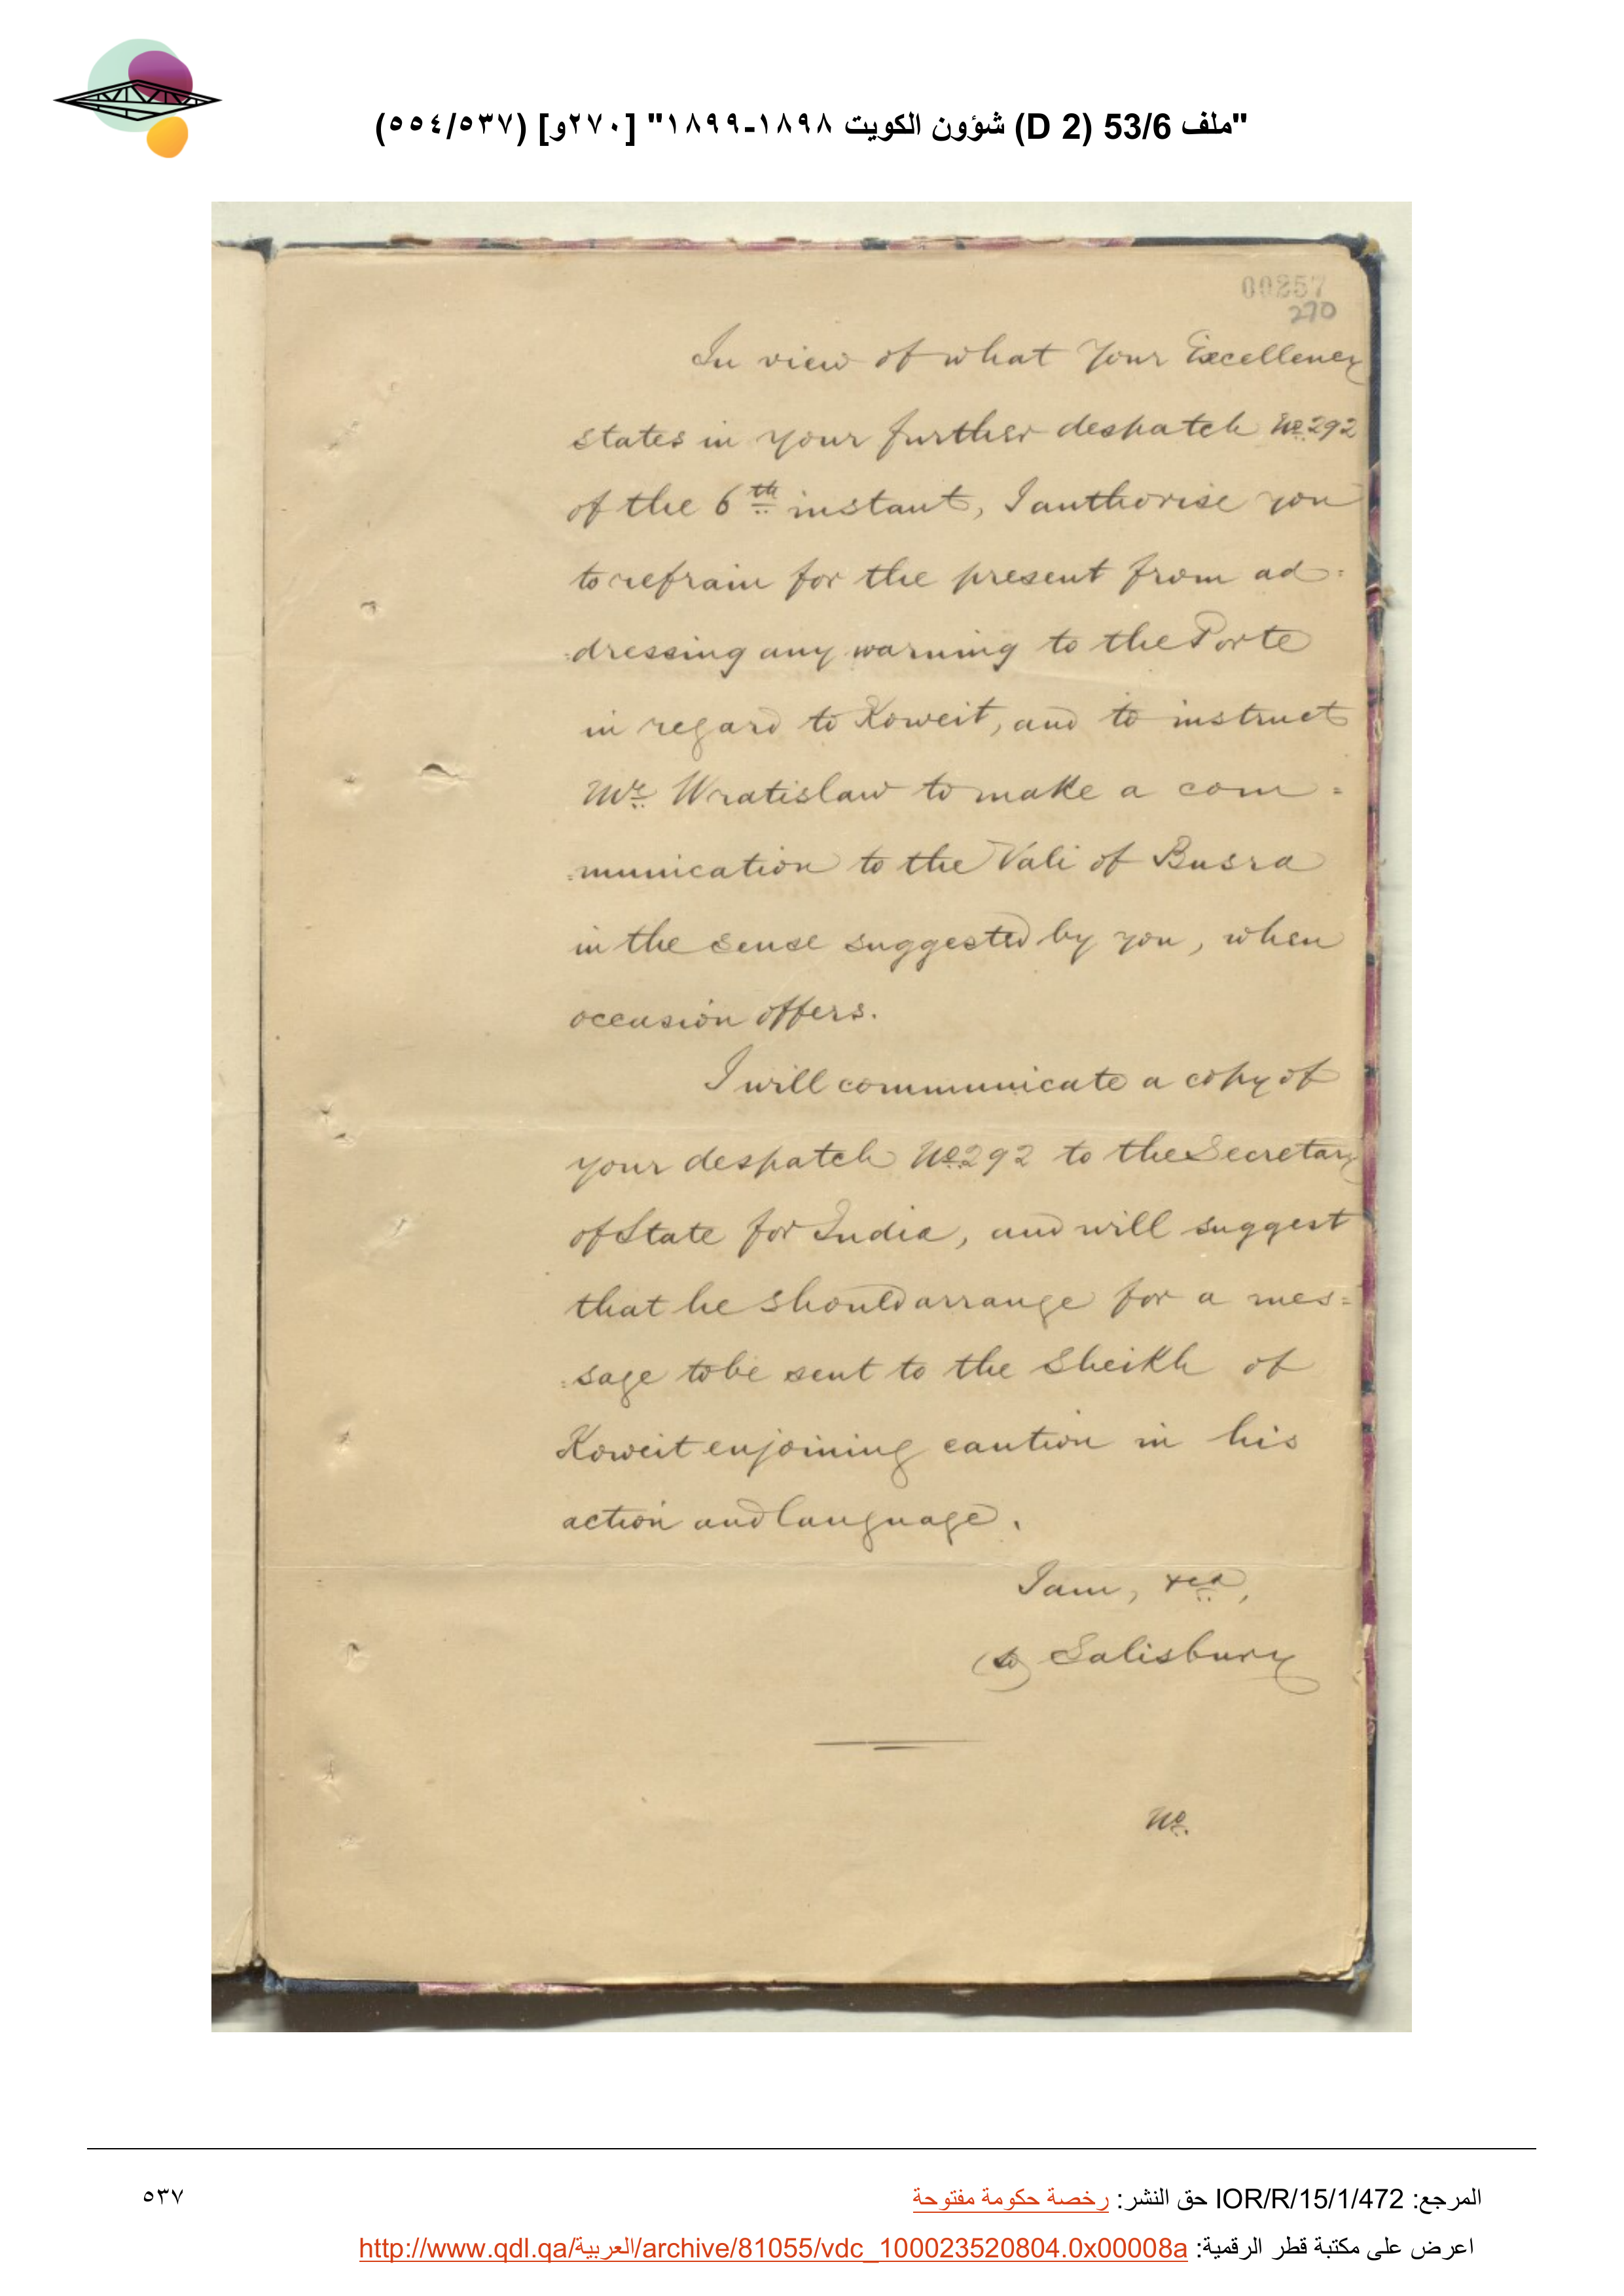 "ملف 53/6 (D 2) شؤون الكويت ١٨٩٨-١٨٩٩" [٢٧٠و] (٥٥٤/٥٣٧)
00257
270
In view of what Your Excellency
states in your further despatch No. 292
of the 6th instant, I authorise you
to refrain for the present from ad=
=dressing any warning to the Porte
in regard to Koweit, and to instruct
Mr. Wratislaw to make a com=
=munication to the Vali of Busra
in the sense suggested by you, when
occasion offers.
I will communicate a copy of
your despatch No. 292 to the Secretary
of State for India, and will suggest
that he should arrange for a mes=
=sage to be sent to the Sheikh of
Koweit enjoining caution in his
action and language.
I am, &ca,
(sd) Salisbury
No.
المرجع: IOR/R/15/1/472 حق النشر: رخصة حكومة مفتوحة
٥٣٧
اعرض على مكتبة قطر الرقمية: http://www.qdl.qa/العربية/archive/81055/vdc_100023520804.0x00008a